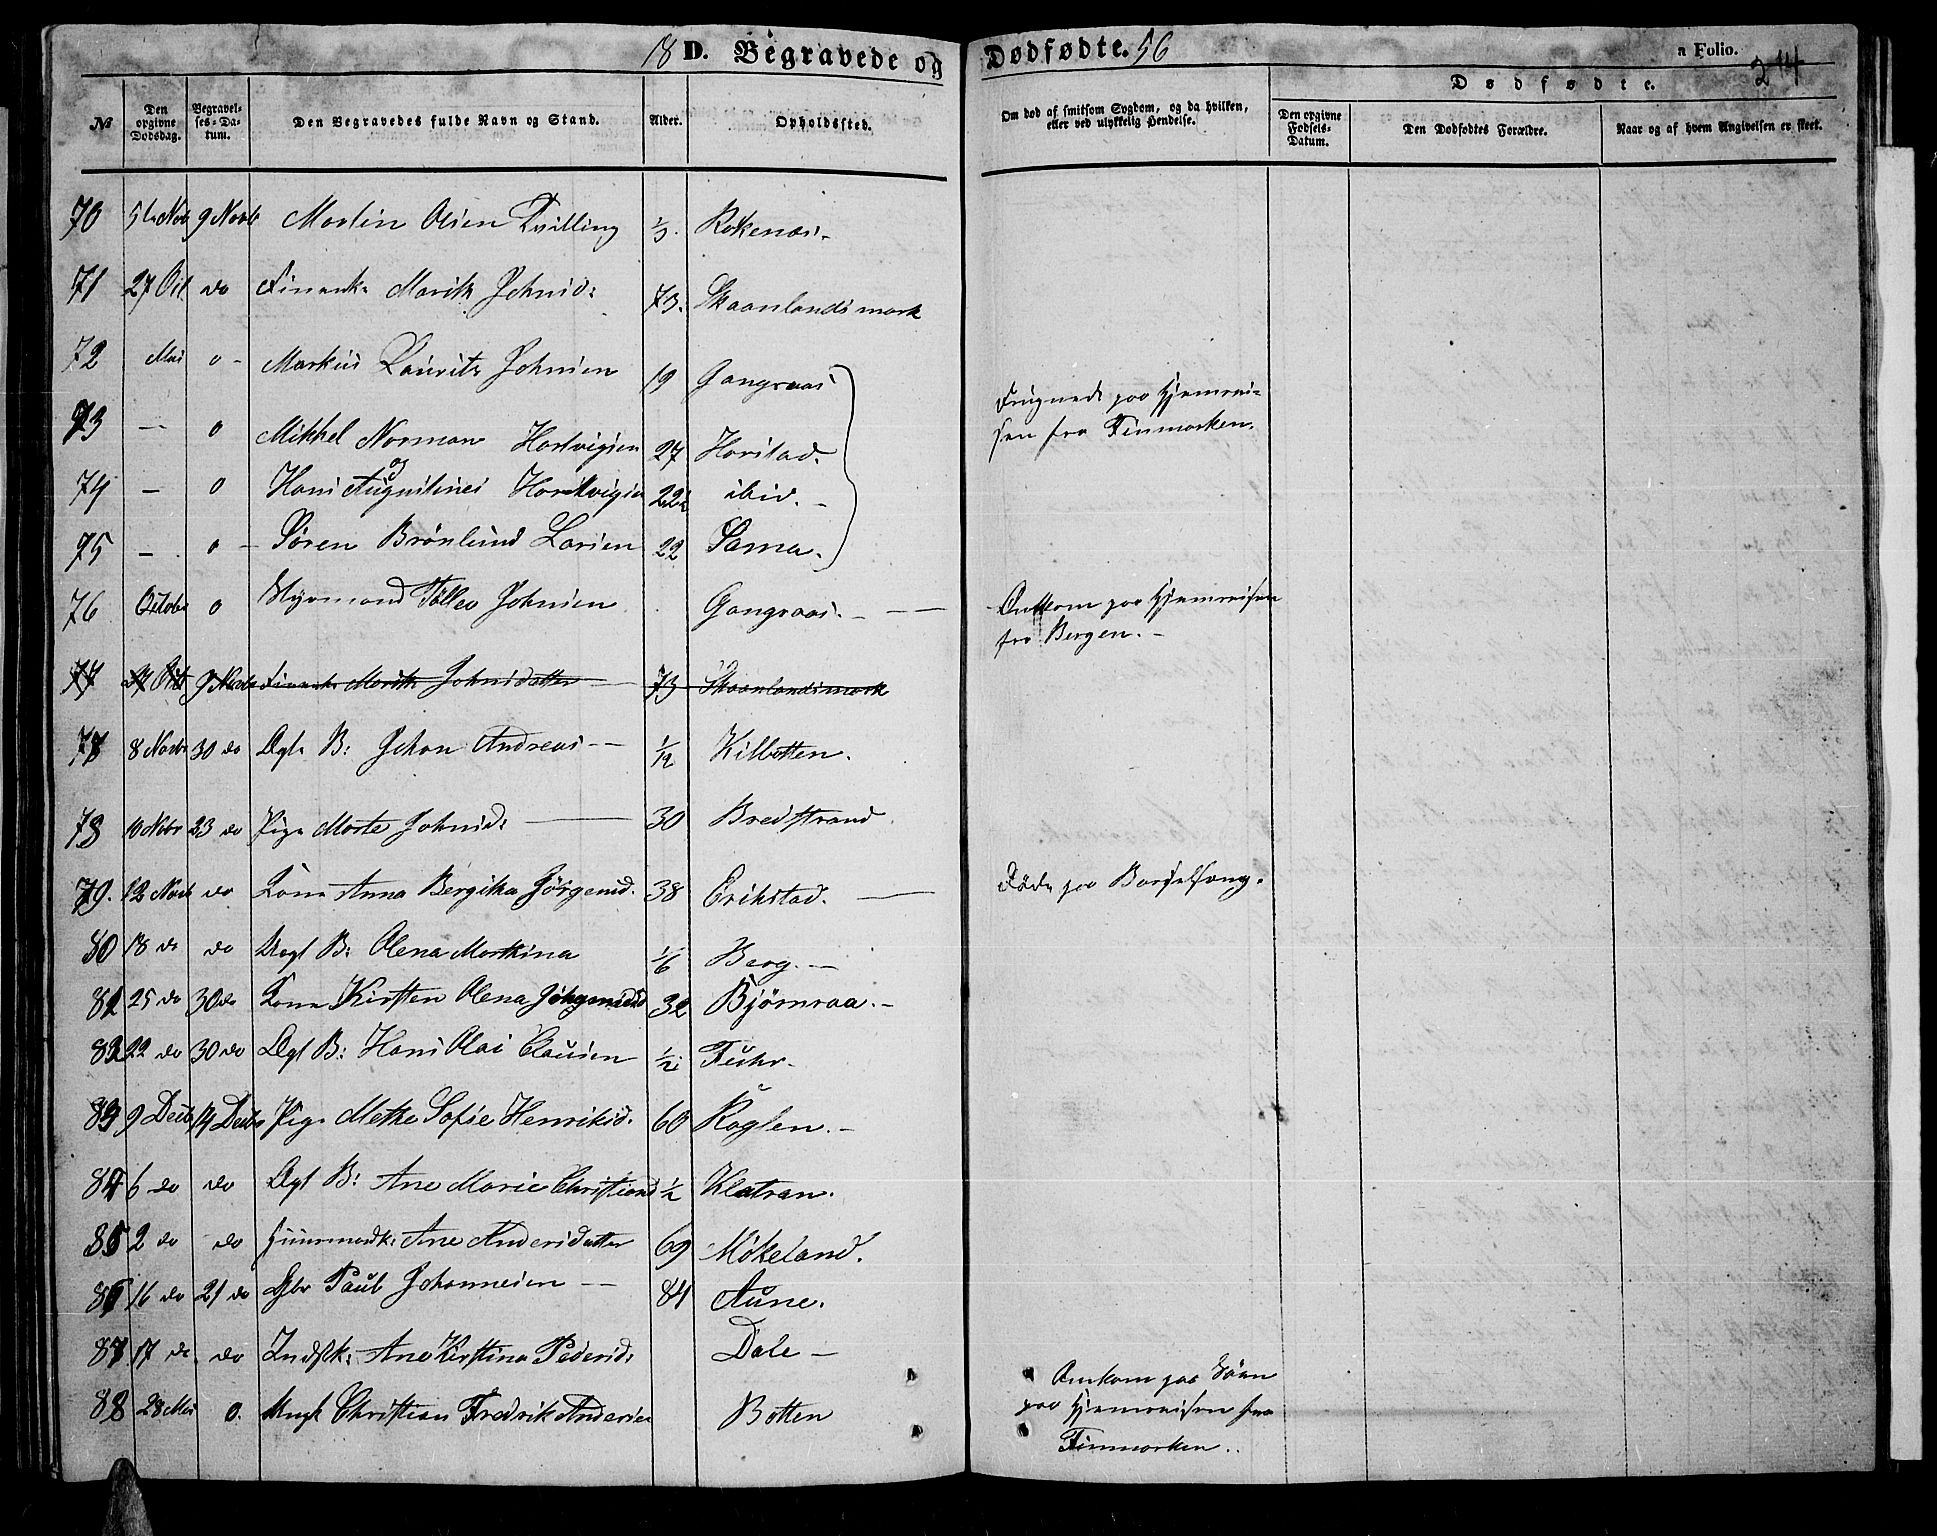 18 D. Begravede og Dødfødte. 56
n Folio.
274
№ Den opgivne Dødsdag. Begravelses-Datum. Den Begravedes fulde Navn og Stand. Alder. Opholdssted. Om død af smitsom Sygdom, og da hvilken, eller ved ulykkelig Hendelse. Dødfødte. Den opgivne Fødsels-Datum. Den Dødfødtes Forældre. Naar og af hvem Angivelsen er skeet.
70 5te Nov 9 Novb Martin Olsen Tvilling Rokenæs
71 27 Oct do Finenk. Marith Johnsd: 73. Skaanlandsmark
72 Mai 0 - Markus Laurits Johnsen 19 Gangsaas
73 - 0 Mikkel Norman Hartvigsen 27 Harstad.
Druknede paa Hjemreisen fra Finmarken.
74 - 0 og Hans Augustinus Hartvigsen 22 ibid. -
75 - 0 - Søren Brønlund Larsen 22 Sama.
76 Octobr 0 Hysmand Tollev Johnsen Gangsaas. - Omkom paa Hjemreisen fra Bergen. -
77 27 Oct 9 Novb Finenk. Marith Johnsdatter 73 Skaanlandsmark
77 8 Novbr 30 do Ægte B: Johan Andreas - 1/2 Kilbotten.
78 10 Nobr 23 do Pige Marte Johnsd: 30 Bredstrand
79. 12 Novb do Kone Anna Bergitha Jørgensd. 38 Erikstad. - Døde paa Barselseng.
80 18 do do Uægt B: Olena Martina 1/6 Berg. -
81 25 do 30 do Kone Kirsten Olena 32 Bjørnraa. -
82 22 do 30 do Ægt B: Hans Olai Clausen 1/2 Fuhr.
83 9 Decb 14 Decb Pige Methe Sofie Henriksd. 60 Røglen. -
84 6 do do Ægt B: Ane Marie Christiansd 1/2 Klatran.
85 2 do do Huusmandsk: Ane Andersdatter 69 Møkeland.
86 16 do 21 do Gbr Paul Johannesen - 84 Aune.
87 17 do do Indstk: Ane Kirstina Pedersd: Dale -
88 28 Mai 0. Ungk Christian Fredrik Andersen Botten
Omkom paa Søen paa Hjemreisen fra Finmarken.